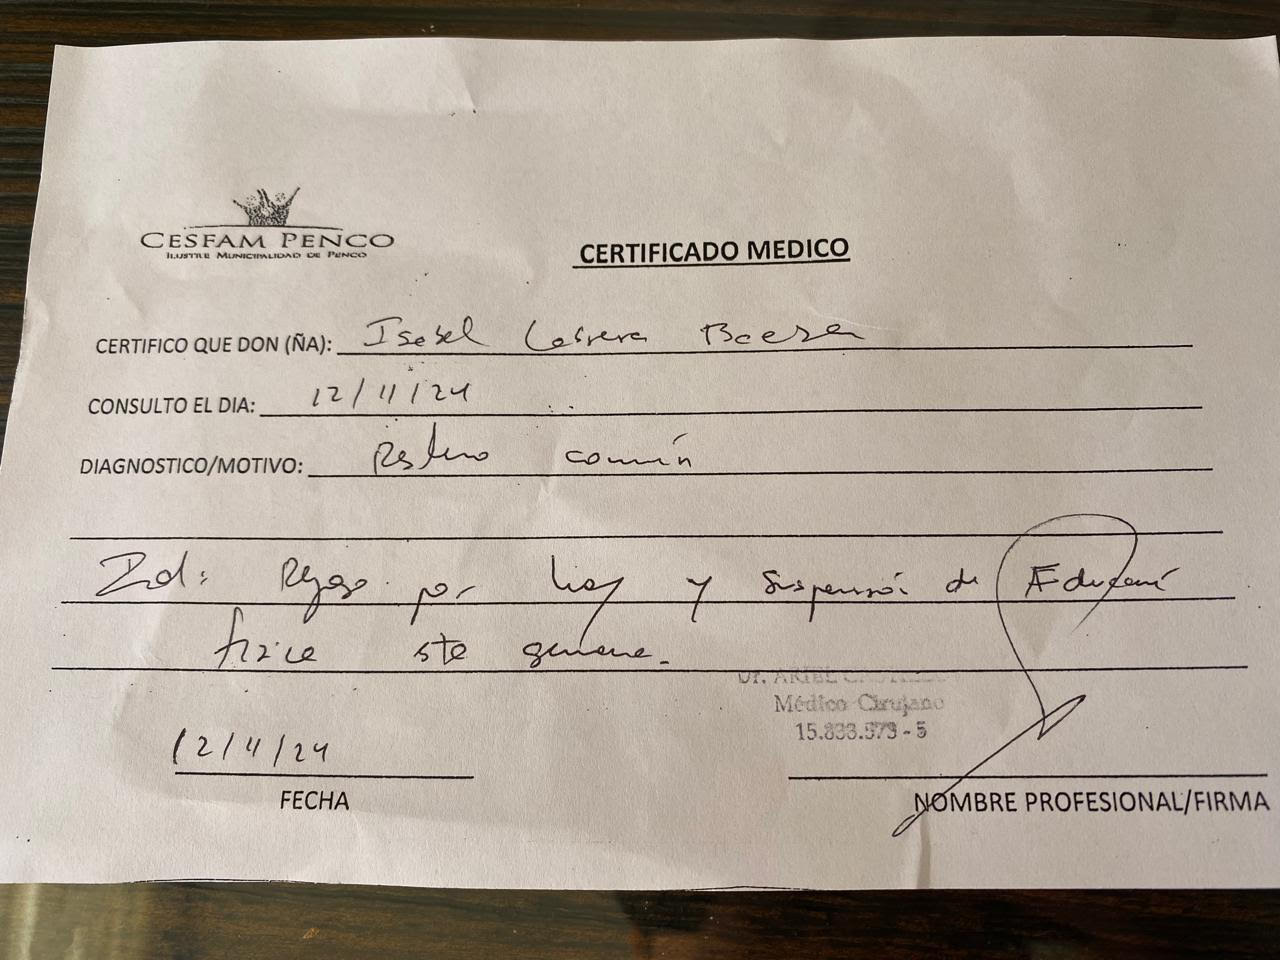 CESFAM PENCO
ILUSTRE MUNICIPALIDAD DE PENCO
CERTIFICADO MEDICO
CERTIFICO QUE DON (ÑA): Isabel Cabrera Baeza
CONSULTO EL DIA: 12/11/24
DIAGNOSTICO/MOTIVO: Resfrío común
Ind: Reposo por hoy y suspensión de Educación
física este semana.
Dr. ARIEL
Médico Cirujano
12/11/24
FECHA
NOMBRE PROFESIONAL/FIRMA